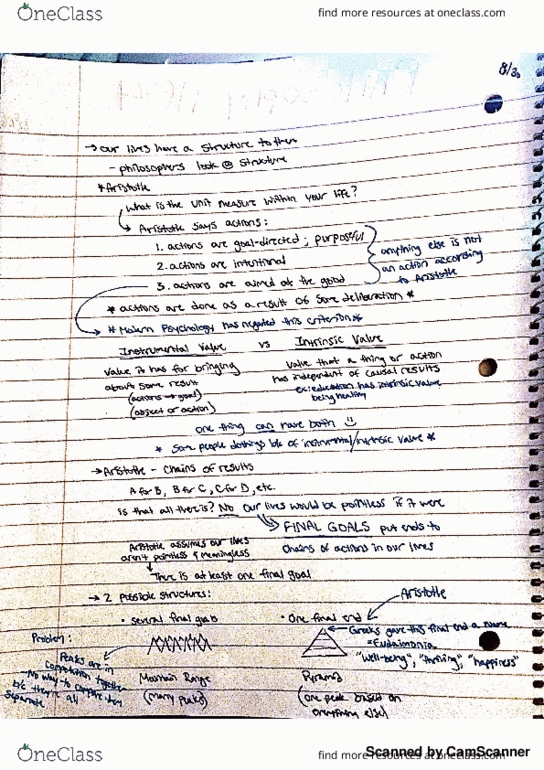 OneClass
find more resources at oneclass.com
8/30
→ our lives have a structure to them
- philosophers look @ structure
* Aristotle
What is the unit measure within your life?
↳ Aristotle says actions:
1. actions are goal-directed; purposeful
2. actions are intentional
3. actions are aimed at the good
anything else is not
an action according
to Aristotle
* actions are done as a result of some deliberation *
* Modern Psychology has negated this criterion *
Instrumental Value vs Intrinsic Value
Value it has for bringing
about some result
(actions → goal)
(object or action)
Value that a thing or action
has independent of causal results
ex: education has intrinsic value
being healthy
one thing can have both
* Some people do things b/c of instrumental/intrinsic value *
→ Aristotle - Chains of results
A for B, B for C, C for D, etc.
Is that all there is? No our lives would be pointless if it were
FINAL GOALS put ends to
chains of actions in our lives
Aristotle assumes our lives
aren't pointless & meaningless
There is at least one final goal
→ 2 possible structures:
• several final goals
Mountain Range
(many peaks)
Problem:
Peaks are in
together
No way to compare them
b/c they're all
separate
• One final end
Aristotle
Greeks gave this final end a name
= Eudaimonia
"well-being", "thriving", "happiness"
Pyramid
(one peak based on
everything else)
OneClass
find more resources at oneclass.com
Scanned by CamScanner